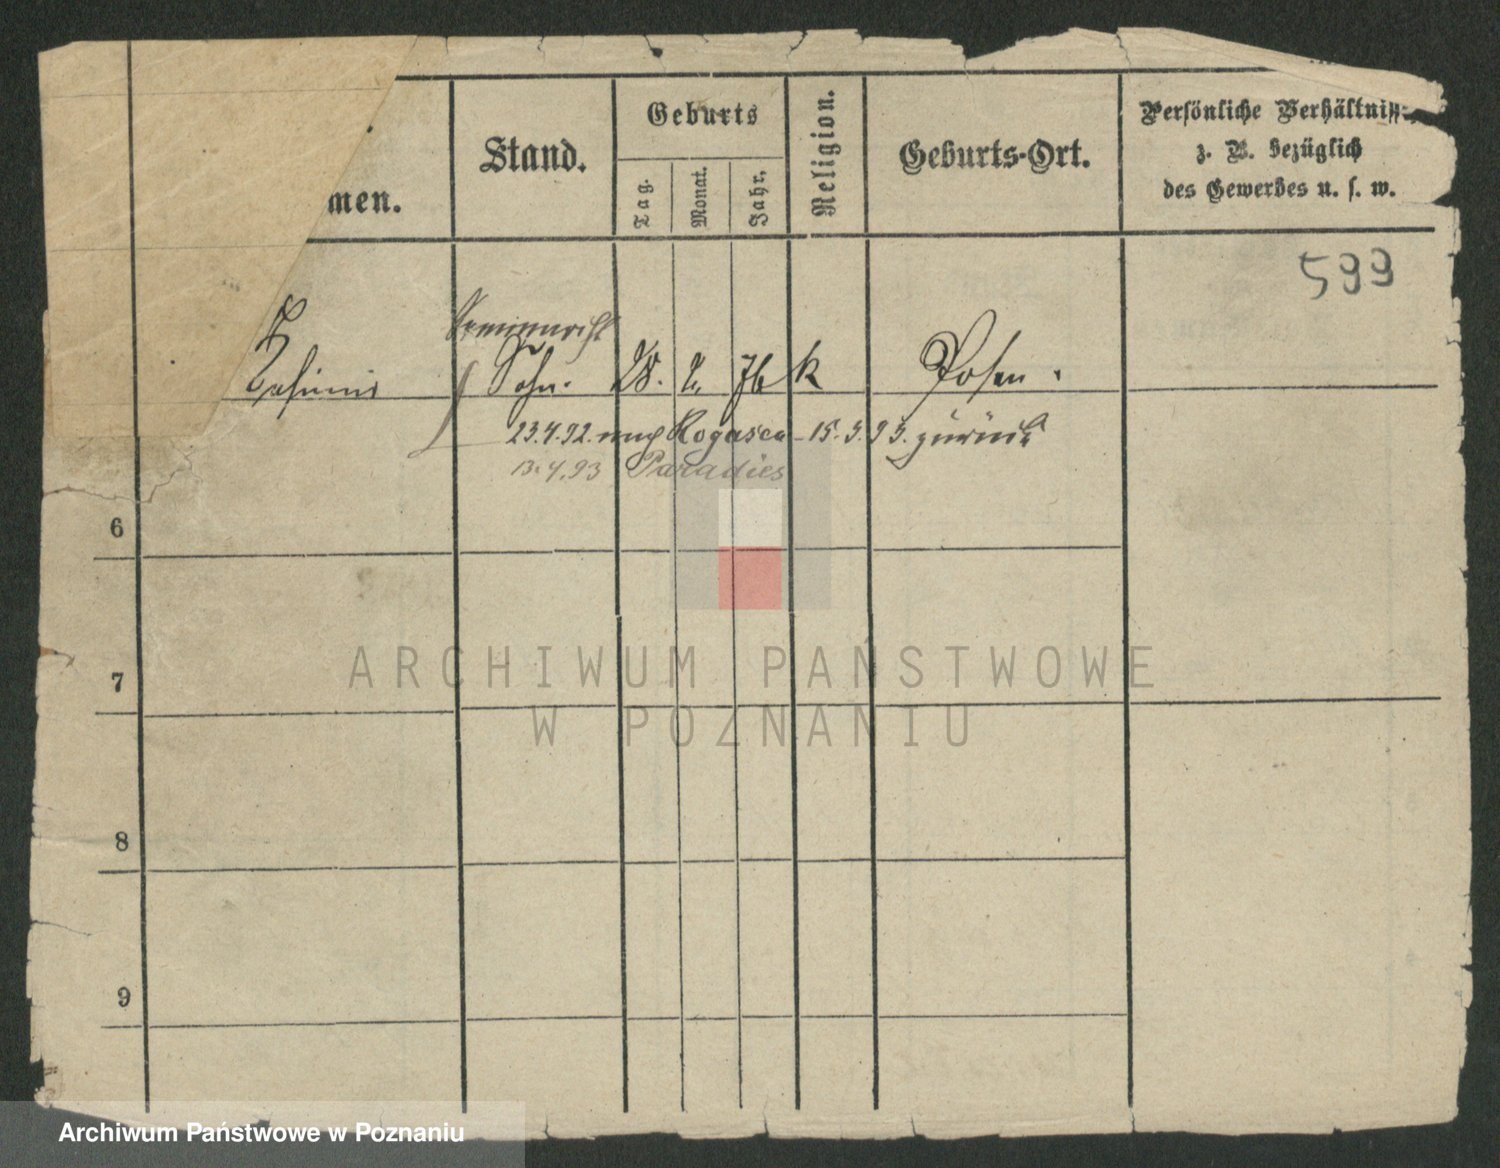 men.
Stand.
Geburts
Tag.
Monat.
Jahr.
Religion.
Geburts-Ort.
Persönliche Verhältniss
z. B. bezüglich
des Gewerbes u. s. w.
599
Seminarist
Casimir Sohn. 28. 2. 76 k Posen.
23.4.92. nach Rogasen - 15.3.93. zurück
13.4.93 Paradies
6
7
8
9
ARCHIWUM PAŃSTWOWE
W POZNANIU
Archiwum Państwowe w Poznaniu